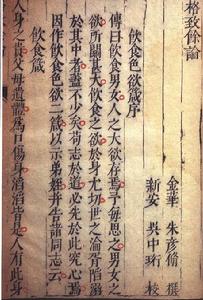 格致餘論
金華 朱彥脩 撰
新安 吳中珩 校
飲食色欲箴序
傳曰飲食男女人之大欲存焉予每思之男女之
欲所關甚大飲食之欲於身尤切世之淪胥陷溺
於其中者蓋不少矣苟志於道必先於此究心焉
因作飲食色欲二箴以示弟姪并告諸同志云
飲食箴
人身之貴父母遺體爲口傷身滔滔皆是人有此身